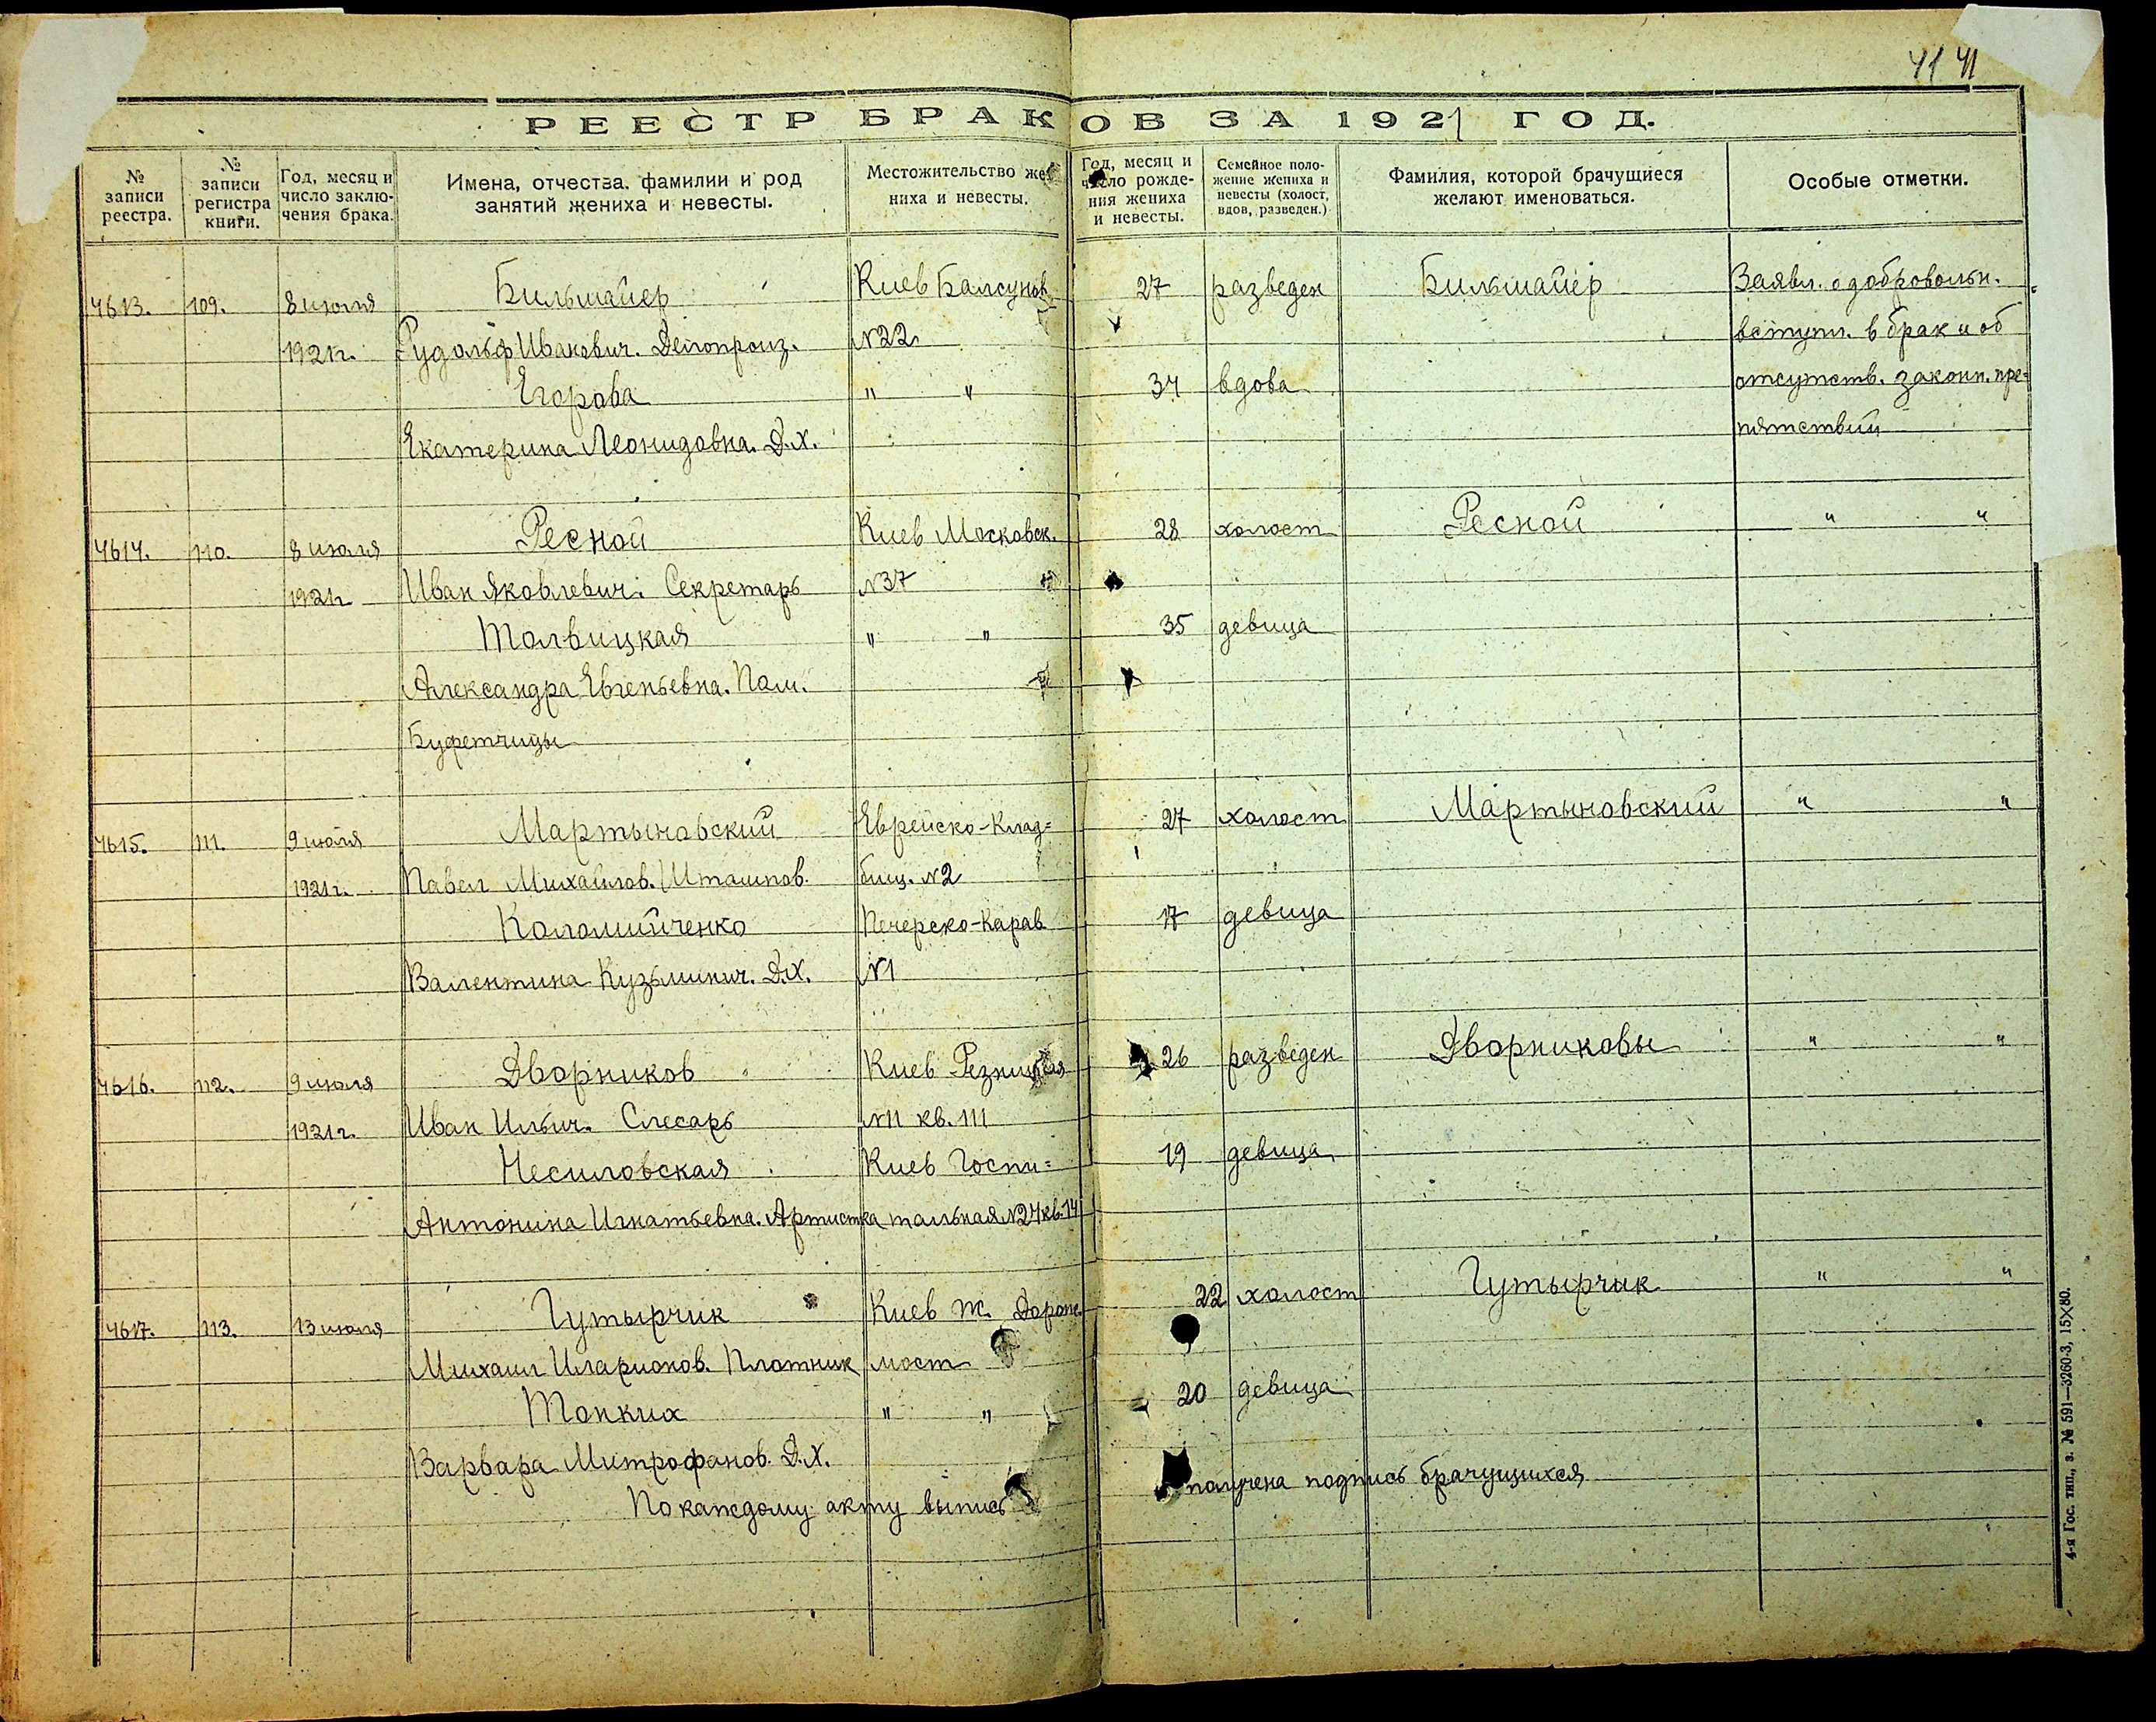 41 41
РЕЕСТР БРАКОВ ЗА 1921 ГОД.
№ записи реестра.
№ записи регистра книги.
Год, месяц и число заключения брака.
Имена, отчества, фамилии и род занятий жениха и невесты.
Местожительство жениха и невесты.
Год, месяц и число рождения жениха и невесты.
Семейное положение жениха и невесты (холост, вдов, разведен.)
Фамилия, которой брачущиеся желают именоваться.
Особые отметки.
4613. 109. 8 июля Бильмайер Киев Балсунов 27 разведен Бильмайер Заявл. о добровольн.
1921г. Рудольф Иванович. Делопроиз. №22 вступл. в брак и об
Егорова " " 34 вдова отсутств. законн. пре=
Екатерина Леонидовна. Д.Х. пятствий
4614. 110. 8 июля Ресной Киев Московск. 28 холост Ресной " "
1921г. Иван Яковлевич. Секретарь №37
Толвицкая " " 35 девица
Александра Евгеньевна. Пом.
Буфетчицы
4615. 111. 9 июля Мартыновский Еврейско-Клад= 27 холост Мартыновский " "
1921г. Павел Михайлов. Штампов. бищ. №2
Коломийченко Печерско-Карав. 17 девица
Валентина Кузьминич. Д.Х. №1
4616. 112. 9 июля Дворников Киев Резницкая 26 разведен Дворниковы " "
1921г. Иван Ильич. Слесарь №11 кв. 111
Несиловская Киев Госпи= 19 девица
Антонина Игнатьевна. Артистка тальная №24 кв. 14
4617. 113. 13 июля Гутырчик Киев Ж. Дорож. 22 холост Гутырчик " "
Михаил Иларионов. Плотник мост
Тонких " " 20 девица
Варвара Митрофанов. Д.Х.
По каждому акту выпись получена подпись брачущихся
4-я Гос. тип., з. № 591—3260-3, 15×80.